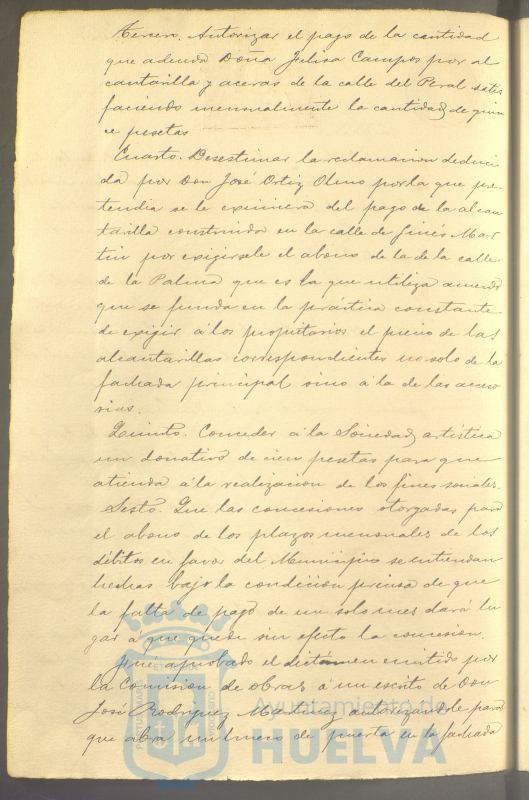 Tercero. Autorizar el pago de la cantidad
que adeuda Doña Felisa Campos por al
cantarilla y aceras de la calle del Peral satis
faciendo mensualmente la cantidad de quin
ce pesetas
Cuarto. Desestimar la reclamacion deduci
da por Don José Ortiz Olmo por la que pre
tendia se le eximiera del pago de la alcan
tarilla construida en la calle de Ginés Mar
tin por exigirsele el abono de la de la calle
de la Palma que es la que utiliza acuerdo
que se funda en la práctica constante
de exigir á los propietarios el precio de las
alcantarillas correspondientes no solo de la
fachada principal sino á la de las acceso
rias.
Quinto. Conceder á la Sociedad artistica
un donativo de cien pesetas para que
atienda á la realizacion de los fines sociales.
Sesto. Que las concesiones otorgadas para
el abono de los plazos mensuales de los
débitos en favor del Municipio se entiendan
hechas bajo la condición precisa de que
la falta de pago de un solo mes dará lu
gar á que quede sin efecto la concesion.
Fué aprobado el dictámen emitido por
la Comision de obras á un escrito de Don
José Rodriguez Martinez autorizandole para
que abra un hueco de puerta en la fachada
Ayuntamiento de
HUELVA